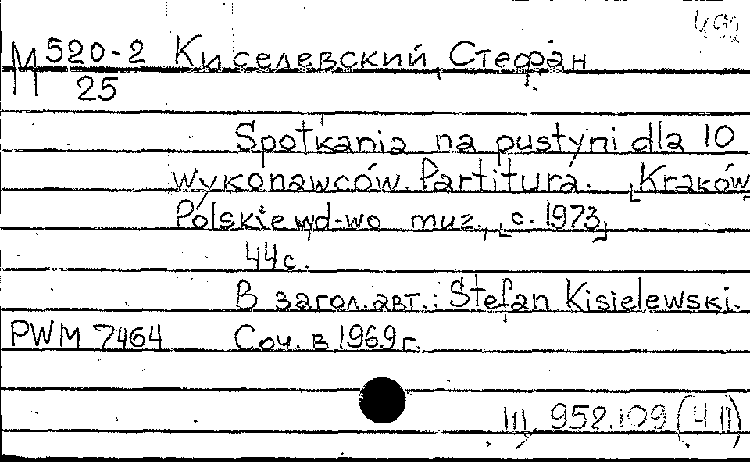 М 520-2 Киселевский, Стефан
25
Spotkania na pustyni dla 10
wykonawców. Partitura. [Kraków,
Polskie wyd-wo muz., [c. 1973]
44с.
В загол. авт.: Stefan Kisielewski.
PWM 7464 Соч. в 1969 г.
III 958.109 (4 II)